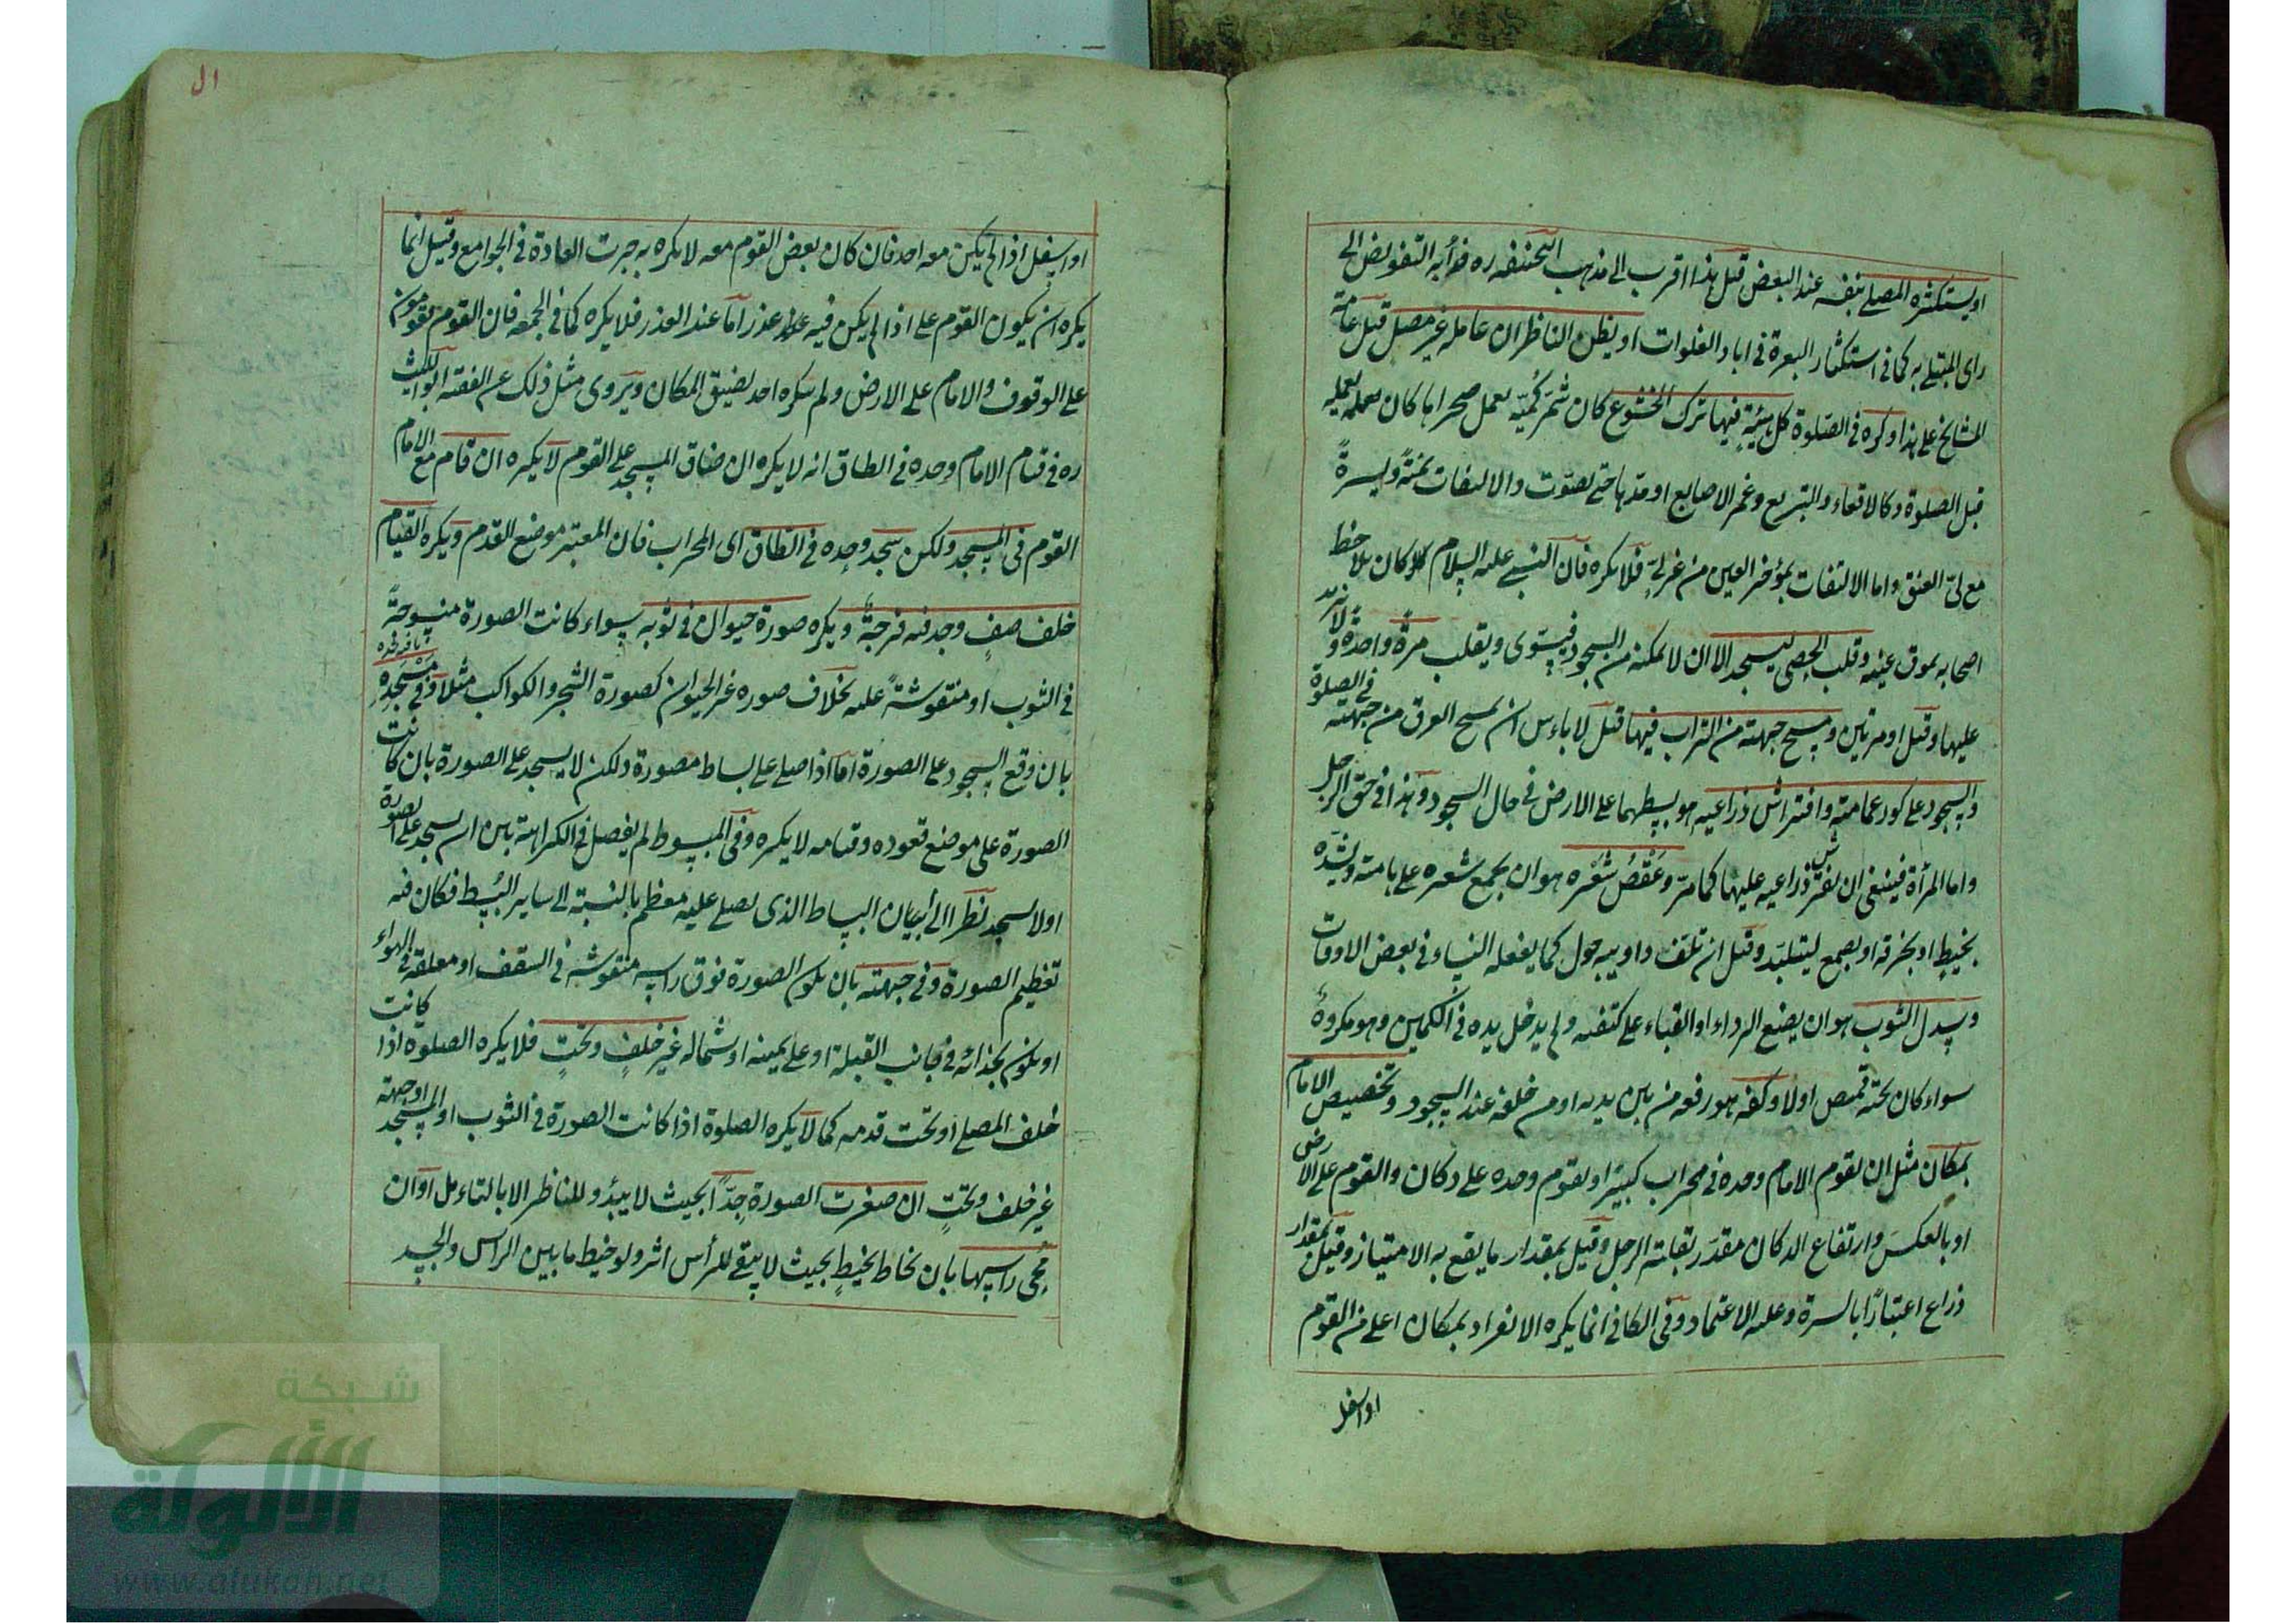 او يستكثره المصلے بنفسه عند البعض قيل هذا اقرب الى مذهب ابيحنيفه ره فدأبه التفويض الى
رای المبتلى به كما فی استكثار البعرة فی ابار الفلوات او يظن الناظر ان عامله غير مصل قيل عامة
المشايخ على هذا وكره فی الصلوة كل هيئة فيها ترك الخشوع كان شمر كميه لعمل صحرا ها كان يعمله
قبل الصلوة وكالاقعاء والتربع وغمز الاصابع او مدها حتى تصوت والالتفات يمنةً ويسرةً
مع لیّ العنق واما الالتفات بمؤخر العين من غير لیٍّ فلا يكره فان النبی عليه السلام كان يلاحظ
اصحابه بموق عينيه وقلب الحصى ليسجد الا ان لا يمكنه من السجود فيسوّى ويقلب مرةً واحدةً ولا يزيد
عليها وقيل او مرتين ومسح جبهته من التراب فيها قيل لا باءس ان يمسح العرق من جبهته فی الصلوة
والسجود على كور عمامته وافتراش ذراعيه هو بسطهما على الارض فی حال السجود وهذا فی حق الرجل
واما المرأة فينبغی ان تفترش ذراعيه عليها كما مر وعَقصُ شَعْره هو ان يجمع شعره على هامته ويشده
بخيطٍ او بخرقة او بصمغ ليتلبد وقيل ان تلف ذوايبه حول كما يفعله النساء فی بعض الاوقات
وسدل الثوب هو ان يضع الرداء او القباء على كتفيه ولم يدخل يده فی الكمين وهو مكروهٌ
سواء كان تحته قميص اولا وكفه هو رفعه من بين يديه او من خلفه عند السجود وتخصيص الامام
بمكان مثل ان يقوم الامام وحده فی محراب كبير او يقوم وحده على دكان والقوم على الارض
او بالعكس وارتفاع الدكان مقدر بقامة الرجل وقيل بمقدار ما يقع به الامتياز وقيل بمقدار
ذراع اعتبارًا بالسترة وعليه الاعتماد وفی الكافی انما يكره الانفراد بمكان اعلى من القوم
او اسفل
ال
او اسفل اذا لم يكن معه احد فان كان بعض القوم معه لا يكره به جرت العادة فی الجوامع وقيل انما
يكره ان يكون القوم على اذا لم يكن فيه عذر اما عند العذر فلا يكره كما فی الجمعه فان القوم يقومون
على الوقوف والامام على الارض ولم يكره احد لضيق المكان ويروى مثل ذلك عن الفقيه ابو الليث
ره فی قيام الامام وحده فی الطاق انه لا يكره ان ضاق المسجد على القوم لا يكره ان قام مع الامام
القوم فی المسجد ولكن سجد وحده فی الطاق اى المحراب فان المعتبر موضع القدم ويكره القيام
خلف صفٍ وجد فيه فرجةً ويكره صورة حيوان فی ثوبه سواء كانت الصورة منسوجةً
فی الثوب او منقوشةً عليه بخلاف صوره غير الحيوان كصورة الشجر والكواكب مثلا وفی مسجده
بان وقع السجود على الصورة اما اذا صلى على بساط مصورة ولكن لا يسجد على الصورة بان كانت
الصورة على موضع قعوده وقيامه لا يكره وفی المبسوط لم يفصل فی الكراهة بين ان يسجد على الصورة
او لا يسجد نظرا الى أن البساط الذی يصلى عليه معظم بالنسبة الى ساير البُسط فكان فيه
تعظيم الصورة وفی جهته بان يكون الصورة فوق راسه منقوشه فی السقف او معلقه فی الهواء
او يكون بحذائه فی جانب القبلة او على يمينه او شماله غير خلفٍ وتحتٍ فلا يكره الصلوة اذا كانت
خلف المصلے او تحت قدمه كما لا يكره الصلوة اذا كانت الصورة فی الثوب او المسجد او جهته
غير خلف وتحتٍ ان صغرت الصورة جدًا بحيث لا يبدو للناظر الا بالتاءمل او ان
مُحی راسها بان يخاط بخيطٍ بحيث لا يبقى للرأس اثر ولو خيط ما بين الراس والجسد
شبكة
الألوكة
www.alukah.net